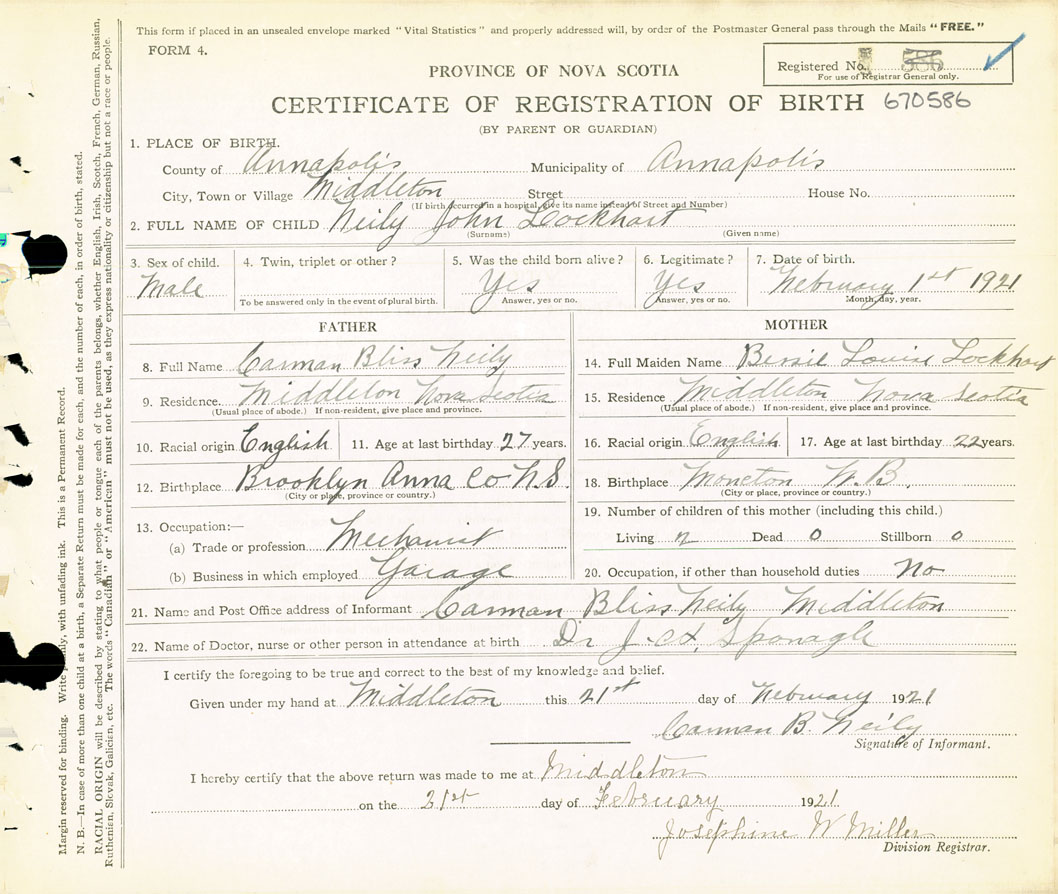 This form if placed in an unsealed envelope marked "Vital Statistics" and properly addressed will, by order of the Postmaster General pass through the Mails "FREE."
FORM 4.
Registered No. 586
For use of Registrar General only.
PROVINCE OF NOVA SCOTIA
CERTIFICATE OF REGISTRATION OF BIRTH 670586
(BY PARENT OR GUARDIAN)
1. PLACE OF BIRTH.
County of Annapolis Municipality of Annapolis
City, Town or Village Middleton Street House No.
(If birth occurred in a hospital, give its name instead of Street and Number)
2. FULL NAME OF CHILD Neily John Lockhart
(Surname) (Given name)
3. Sex of child. 4. Twin, triplet or other? 5. Was the child born alive? 6. Legitimate? 7. Date of birth.
Male Yes Yes February 1st 1921
To be answered only in the event of plural birth. Answer, yes or no. Answer, yes or no. Month, day, year.
FATHER
8. Full Name Carman Bliss Neily
9. Residence. Middleton Nova Scotia
(Usual place of abode.) If non-resident, give place and province.
10. Racial origin English 11. Age at last birthday 27 years.
12. Birthplace Brooklyn Anna Co N.S.
(City or place, province or country.)
13. Occupation:—
(a) Trade or profession Mechanist
(b) Business in which employed Garage
MOTHER
14. Full Maiden Name Louise Lockhart
15. Residence. Middleton Nova Scotia
(Usual place of abode.) If non-resident, give place and province.
16. Racial origin English 17. Age at last birthday 22 years.
18. Birthplace Moncton N.B.
(City or place, province or country.)
19. Number of children of this mother (including this child.)
Living Dead 0 Stillborn 0
20. Occupation, if other than household duties No
21. Name and Post Office address of Informant Carman Bliss Neily Middleton
22. Name of Doctor, nurse or other person in attendance at birth Dr Sponagle
I certify the foregoing to be true and correct to the best of my knowledge and belief.
Given under my hand at Middleton this 21st day of February 1921
Carman B. Neily
Signature of Informant.
I hereby certify that the above return was made to me at Middleton
on the 21st day of February 1921
Josephine W Miller
Division Registrar.
Margin reserved for binding. Write plainly, with unfading ink. This is a Permanent Record.
N. B.—In case of more than one child at a birth, a Separate Return must be made for each, and the number of each, in order of birth, stated.
RACIAL ORIGIN will be described by stating to what people or tongue each of the parents belongs, whether English, Irish, Scotch, French, German, Russian,
Ruthenian, Slovak, Galician, etc. The words "Canadian" or "American" must not be used, as they express nationality or citizenship but not a race or people.